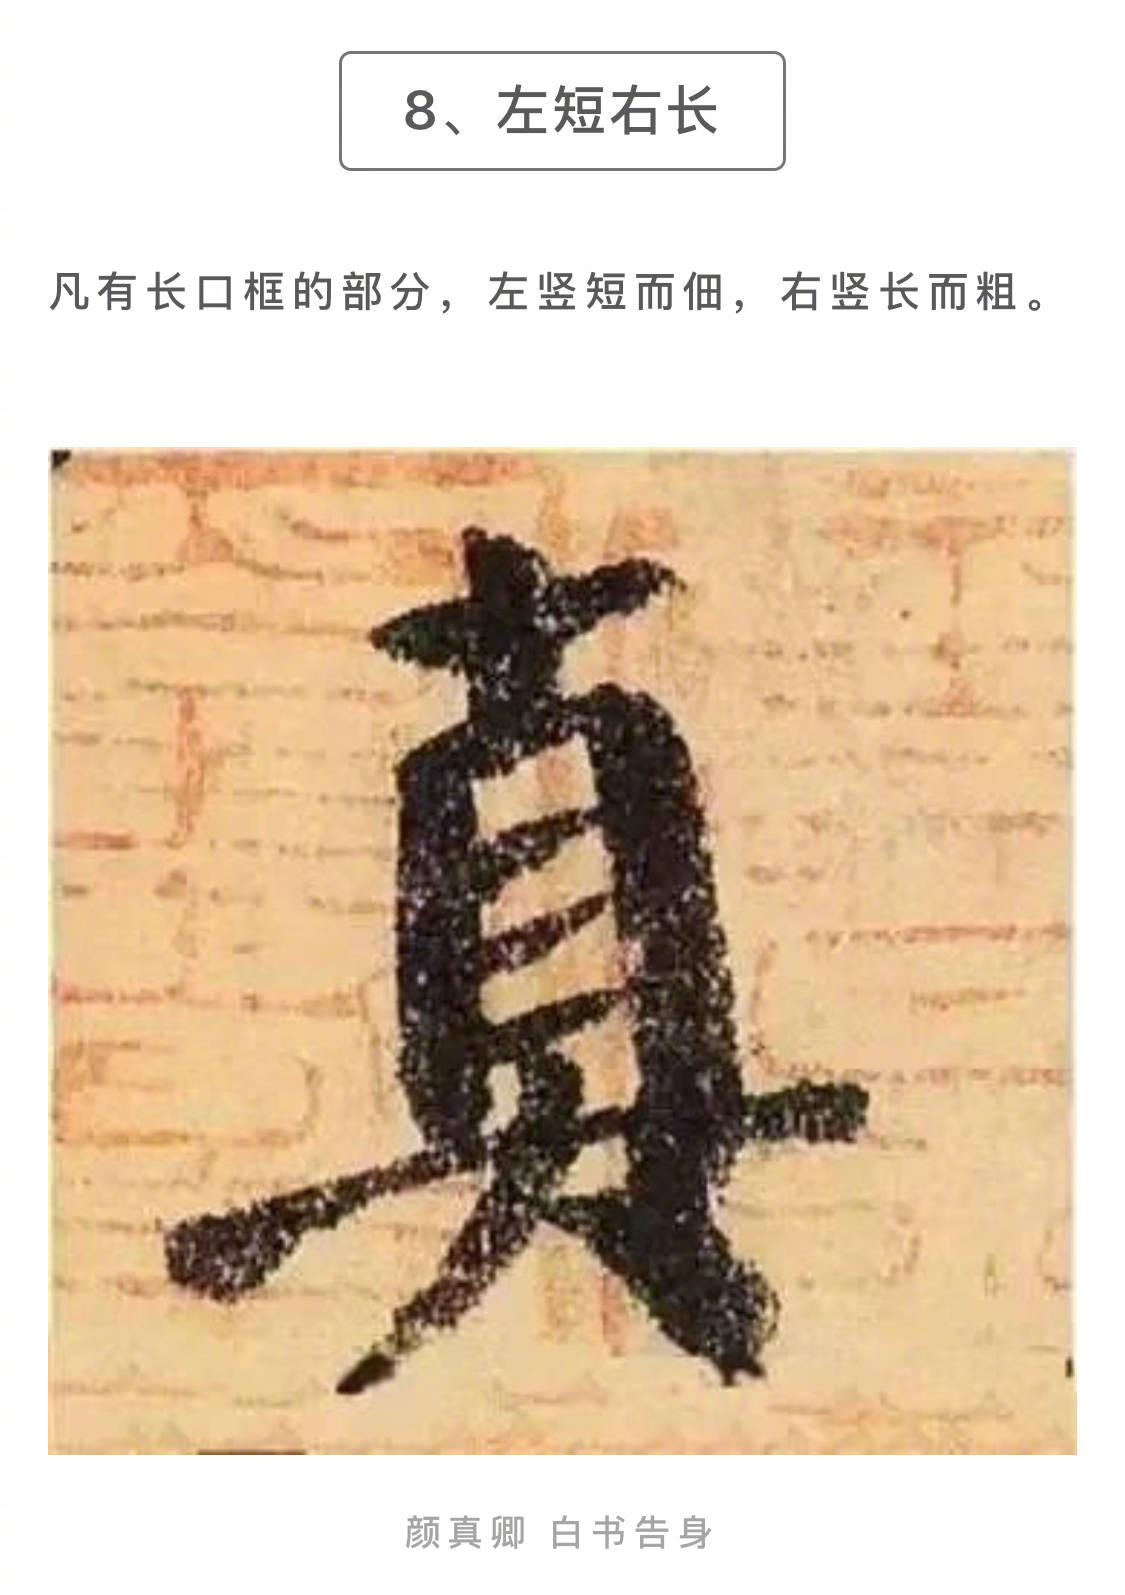 8、左短右长
凡有长口框的部分，左竖短而佃，右竖长而粗。
真
颜真卿 白书告身